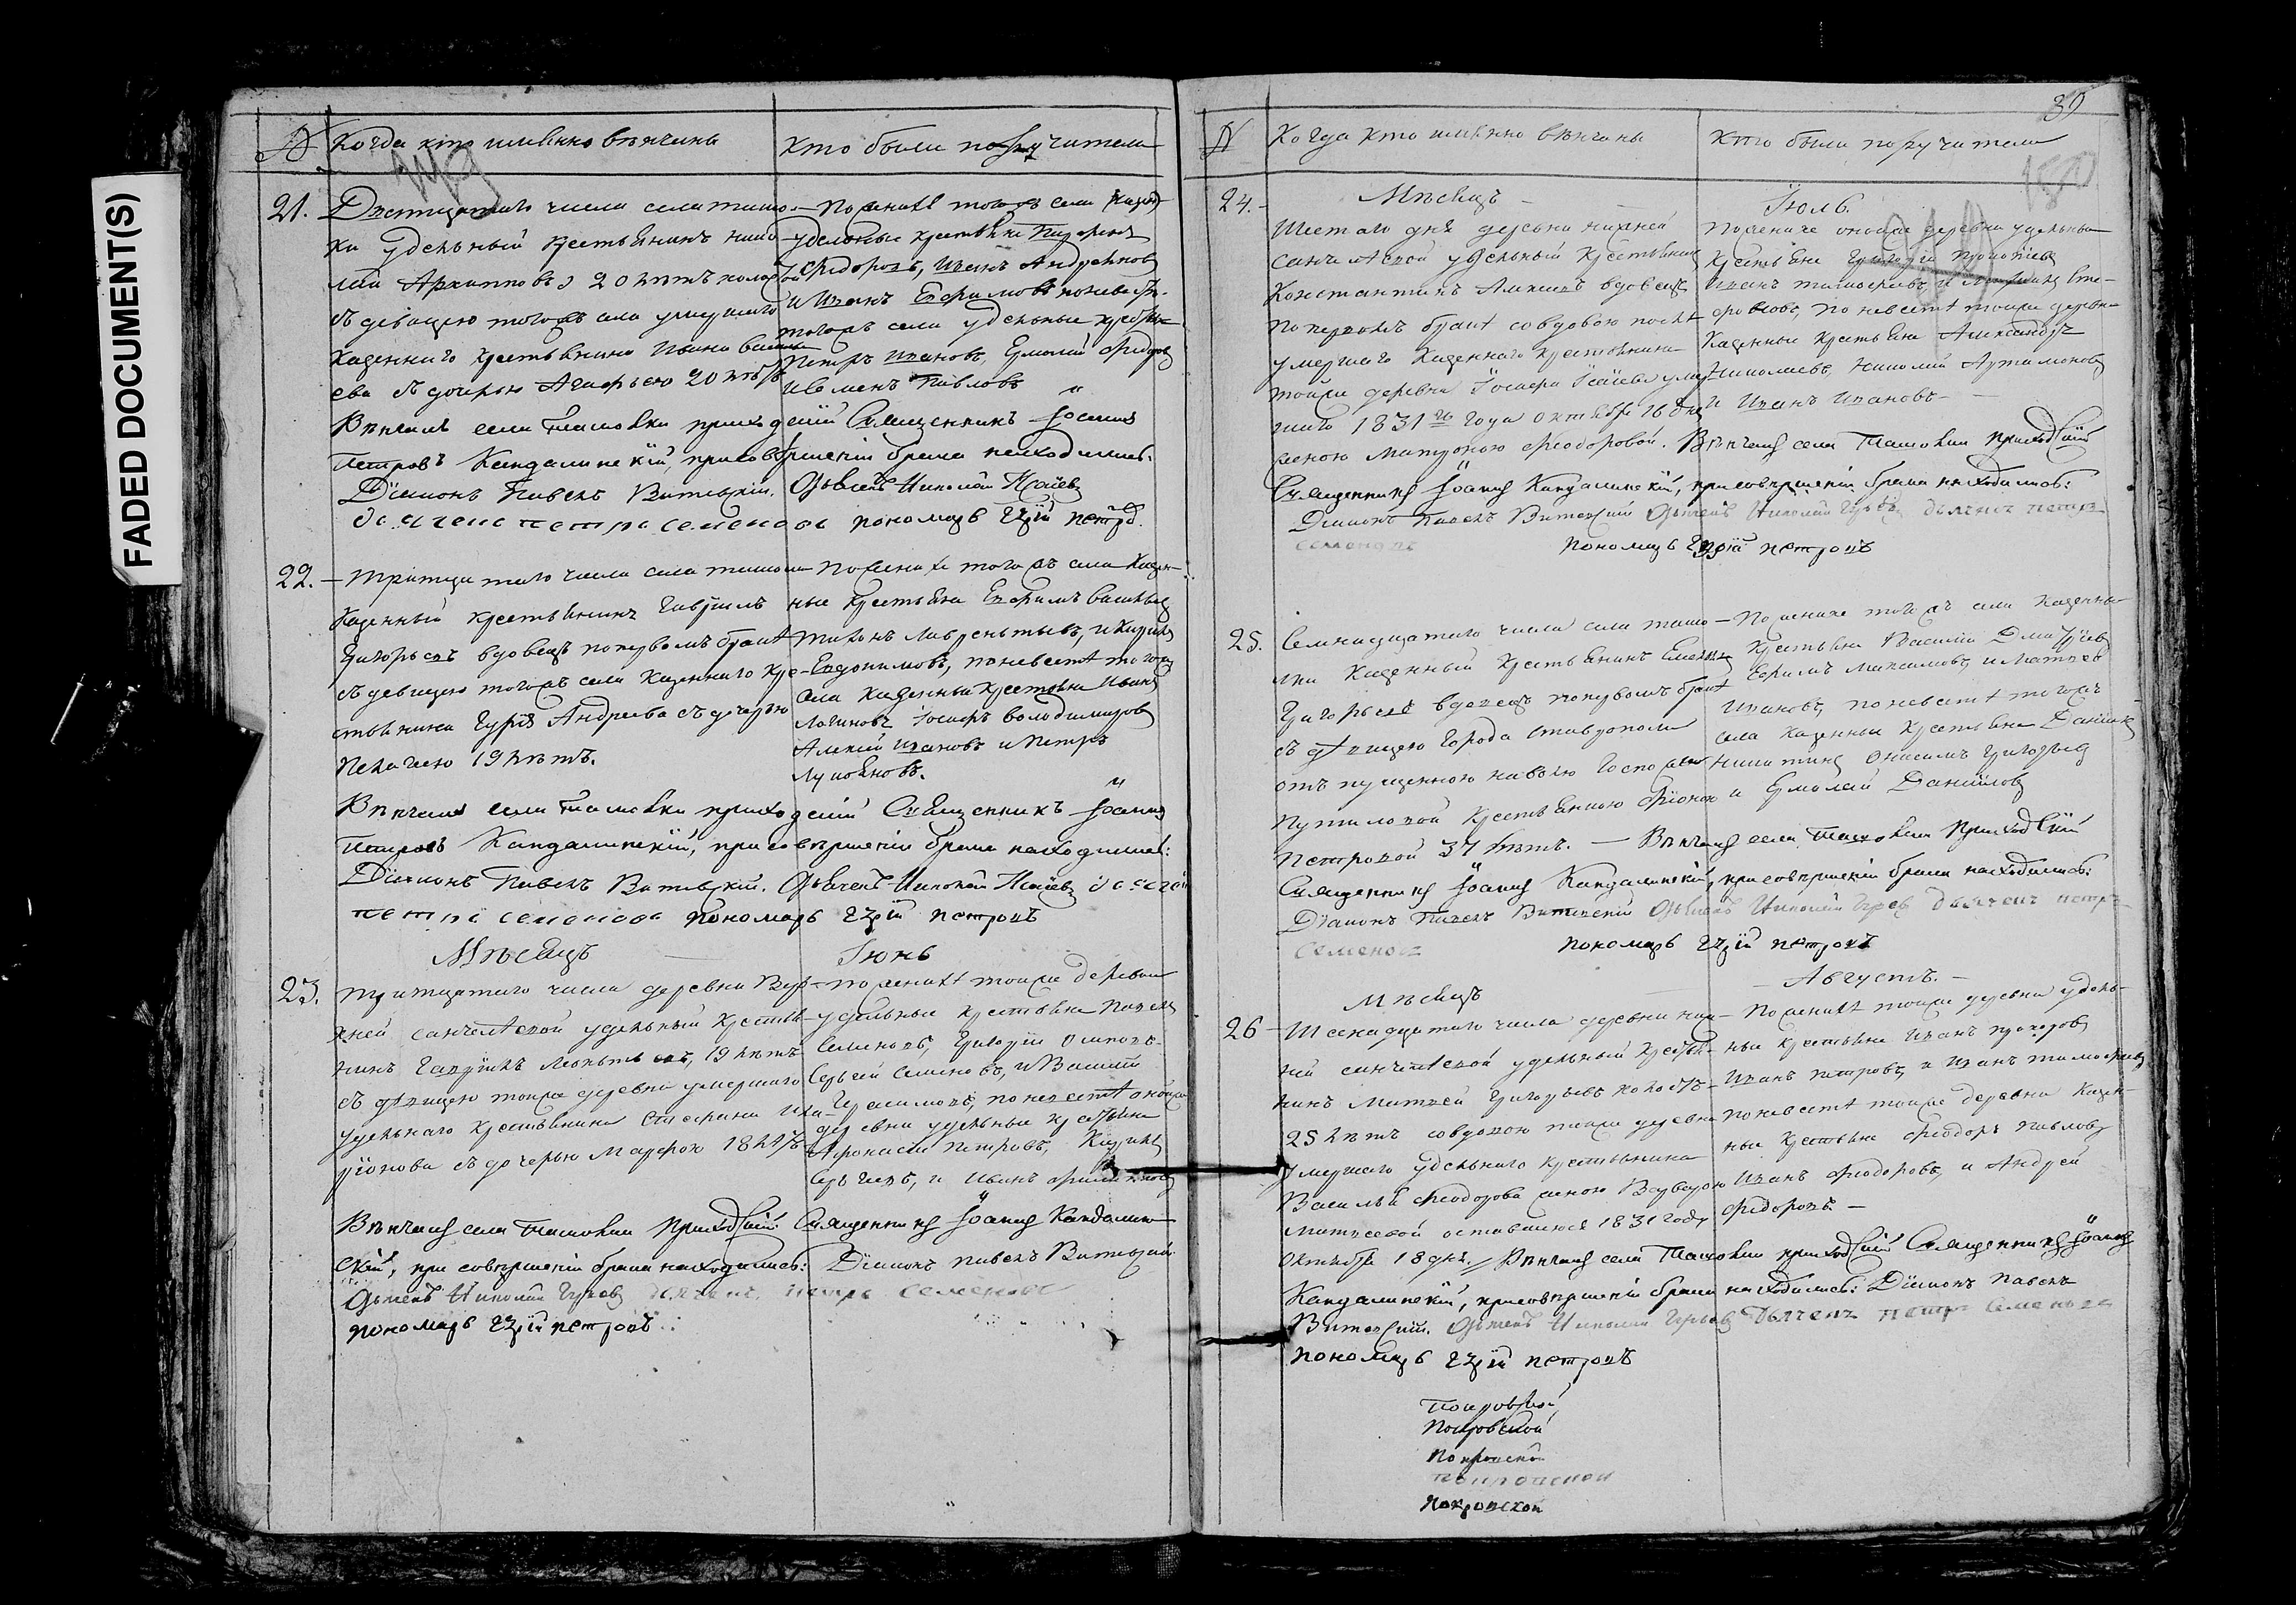 FADED DOCUMENT(S)
№ Когда кто именно вѣнчаны
Кто были поручители
21. Двятцатаго числа села ташо-
лки удельный крестьянинъ Нико-
лай Архиповъ 20 лѣтъ
съ девицею тогожъ села умершаго
казеннаго крестьянина Ивана
ева съ дочерью Агафьею 20 лѣтъ
По женихе тогожъ села
удельные крестьяне
Федоровъ, Иванъ Андреяновъ
и Иванъ Ефимовъ по невесте
тогожъ села удельные крестьяне
Петръ Ивановъ, Ермолай Федоровъ
Павловъ
Вѣнчалъ села Ташолки приходскій Священникъ Іоаннъ
Петровъ Кандалинскій, при совершеніи брака находились:
Діаконъ Павелъ Витевскій. Дьячекъ Николай
дьячекъ петръ семеновъ пономарь Гурій петровъ.
22. Тритцатаго числа села ташолки
казенный крестьянинъ Гаврилъ
Григорьевъ вдовецъ по первомъ браке
съ девицею тогожъ села казеннаго кре-
стьянина Гурія Андреева съ дочерью
Пелагеею 19 лѣтъ.
По женихе тогожъ села казен-
ные крестьяне Ефимъ Васильевъ
Тихонъ Лаврентьевъ, и Кирилъ
Евдокимовъ, по невесте тогожъ
села казенные крестьяне Иванъ
Логиновъ, Іосифъ Володимировъ
Алексей Ивановъ и Петръ
Лукояновъ.
Вѣнчалъ села Ташолки приходскій Священникъ Іоаннъ
Петровъ Кандалинскій, при совершеніи брака находились:
Діаконъ Павелъ Витевскій. Дьячекъ Николай
петръ семеновъ пономарь Гурій петровъ
Мѣсяцъ Іюнь
23. Тритцатаго числа деревни Вер-
хней санчелѣевой удельный крестья-
нинъ Гавріилъ Леонтьевъ, 19 лѣтъ
съ дѣвицею тояже деревни умершаго
удельнаго крестьянина Стефана Ила-
ріонова съ дочерью Марфою 18 лѣтъ
По женихе тояже деревни
удельные крестьяне Павелъ
Семеновъ, Григорій
Сергей Семеновъ, и Василій
Герасимовъ, по невесте оноже
деревни удельные крестьяне
Афонасій Петровъ, Кирилъ
Сергеевъ, и Иванъ
Вѣнчалъ села Ташолки приходскій Священникъ Іоаннъ Кандалин-
скій, при совершеніи брака находились: Діаконъ Павелъ Витевскій
Дьячекъ Николай Гурьевъ дьячекъ петръ семеновъ
пономарь Гурій петровъ
39
180
№ Когда кто именно вѣнчаны
Кто были поручители
24. Мѣсяцъ Іюль.
Шестаго дня деревни нижней
санчелѣевой удельный крестьянинъ
Константинъ вдовецъ
по первомъ браке со вдовою после
умершаго казеннаго крестьянина
тояже деревни Іосифа
шаго 1831го года октября 16 дня
женою Матроною Феодоровой.
По женихе оноже деревни удельные
крестьяне Григорій
Иванъ Тимофеевъ, и
по невесте тояже деревни
казенные крестьяне Александръ
Николаевъ, Николай Артамоновъ
и Иванъ Ивановъ
Вѣнчалъ села Ташолки приходскій
Священникъ Іоаннъ Кандалинскій, при совершеніи брака находились:
Діаконъ Павелъ Витевскій Дьячекъ Николай Гурьевъ дьячекъ петръ
семеновъ пономарь Гурій петровъ
25. Семнадцатаго числа села ташо-
лки казенный крестьянинъ
Григорьевъ вдовецъ по первомъ браке
съ дѣвицею города Ставрополя
отпущенною на волю госпожею
Путиловой крестьянкою
Петровой 37 лѣтъ.
По женихе тогожъ села казенные
крестьяне Василій Дмитріевъ
Ефимъ Максимовъ, и Матвей
Ивановъ, по невесте тогожъ
села казенные крестьяне Даніилъ
Никитинъ Онисимъ Григорьевъ
и Ермолай Даниловъ
Вѣнчалъ села Ташолки приходскій
Священникъ Іоаннъ Кандалинскій, при совершеніи брака находились:
Діаконъ Павелъ Витевскій Дьячекъ Николай Гурьевъ дьячекъ петръ
семеновъ пономарь Гурій петровъ
Мѣсяцъ Августъ.
26 числа деревни ниж-
ней санчелѣевой удельный крестья-
нинъ Матвей Григорьевъ холостъ
25 лѣтъ со вдовою тояже деревни
умершаго удельнаго крестьянина
Василья Феодорова женою Варварою
Матвеевой оставшеюся 1831 года
октября 18 дня.
По женихе тояже деревни удель-
ные крестьяне Иванъ Прохоровъ
Иванъ Петровъ, и Иванъ Тимофеевъ
по невесте тояже деревни казен-
ные крестьяне Феодоръ Павловъ
Иванъ Феодоровъ, и Андрей
Федоровъ.
Вѣнчалъ села Ташолки приходскій Священникъ Іоаннъ
Кандалинскій, при совершеніи брака находились: Діаконъ Павелъ
Витевскій. Дьячекъ Николай Гурьевъ Дьячекъ петръ семеновъ
пономарь Гурій петровъ
Покровской
Покровской
Покровской
покровской
покровской